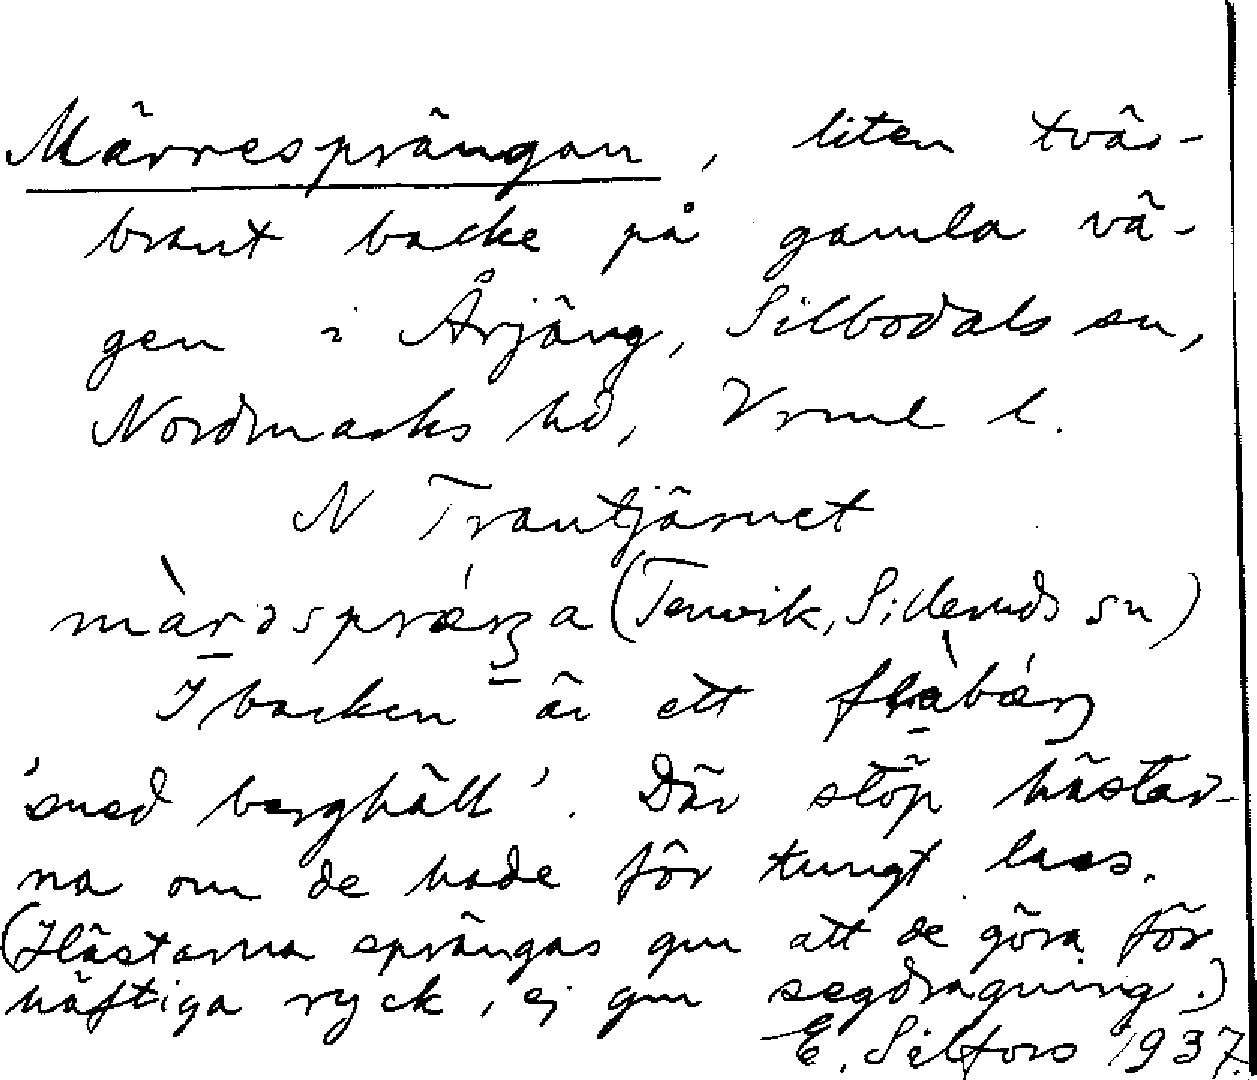 Märresprängan, liten tvär-
brant backe på gamla vä-
gen i Årjäng, Silbodals sn,
Nordmarks hd, Vrml l.
N Trantjärnet
màrəspræŋa (Tenvik, Silleruds sn)
I backen är ett
'sned berghäll'. Där stöp hästar-
na om de hade för tungt lass.
(Hästarna sprängas gm att de göra för
häftiga ryck, ej gm segdragning.)
E. Silfors 1937.